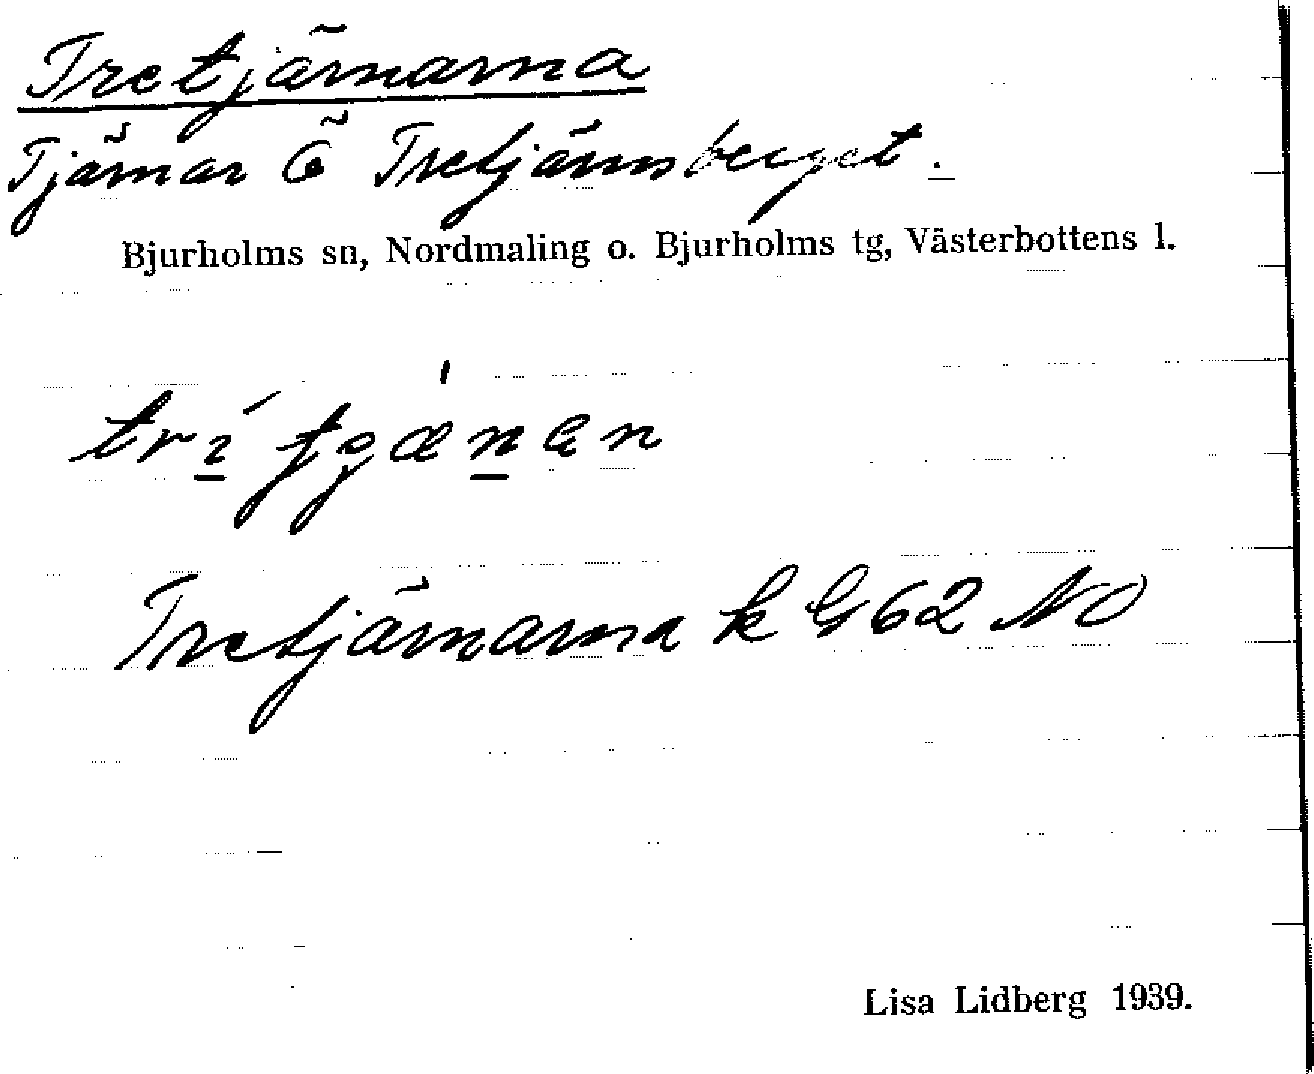 Tretjärnarna
Tjärnar Ö Tretjärnsberget.
Bjurholms sn, Nordmaling o. Bjurholms tg, Västerbottens l.
Tretjärnarna k G62 NO
Lisa Lidberg 1939.